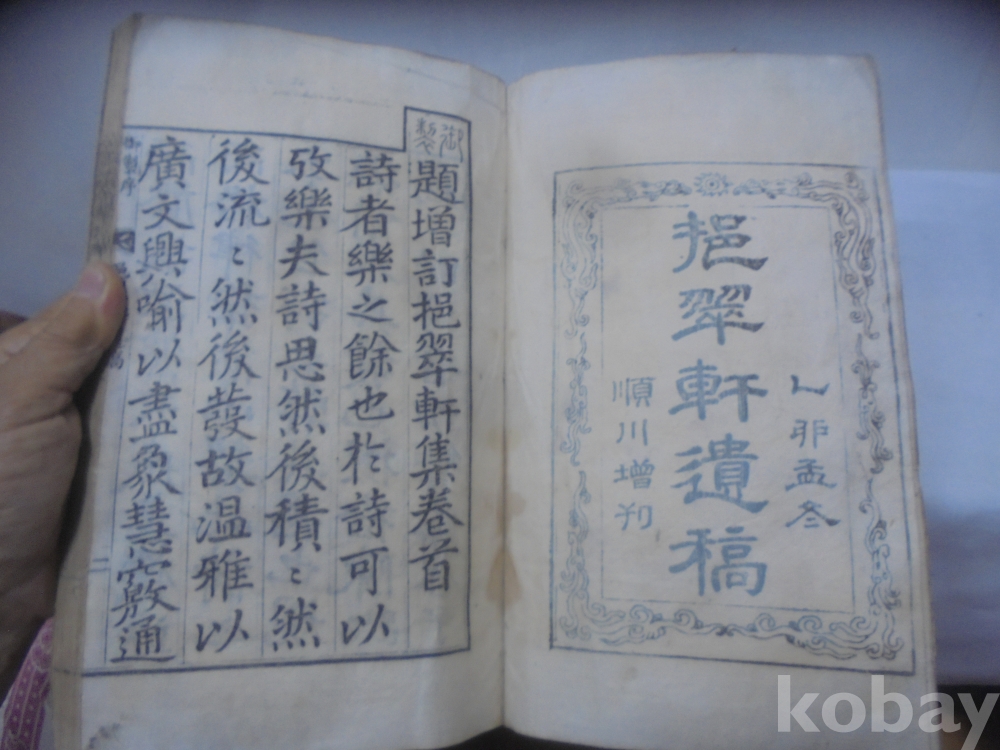 乙卯孟冬
挹翠軒遺稿
順川增刊
御製
題增訂挹翠軒集卷首
詩者樂之餘也扵詩可以
攷樂夫詩思然後積〻然
後流〻然後發故温雅以
廣文興喻以盡象慧竅通
御製序
一
kobay